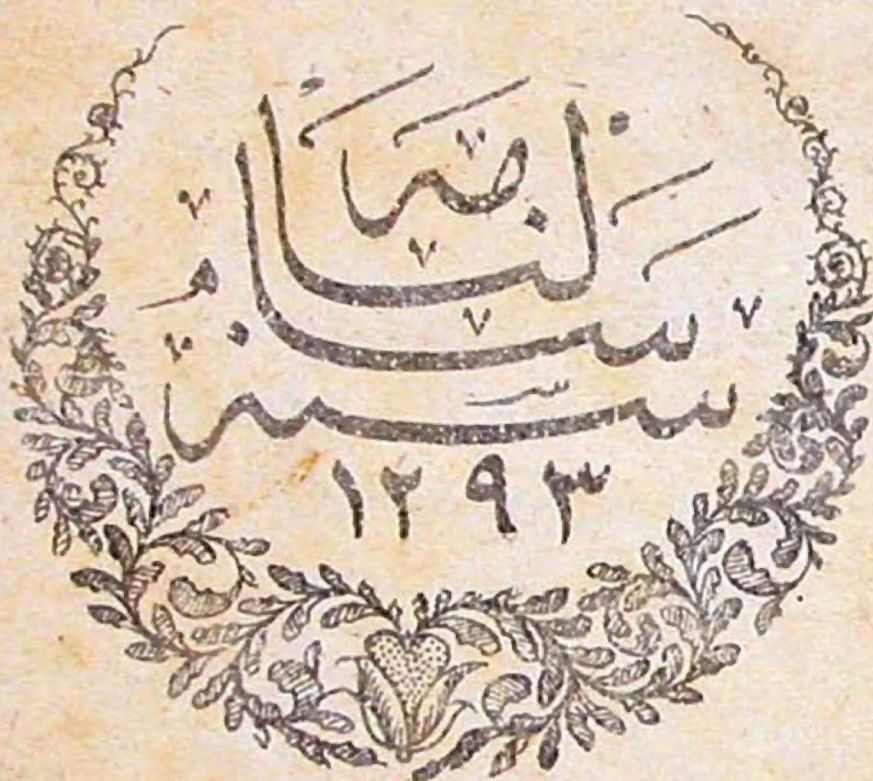 سالنامه
سنه
١٢٩٣